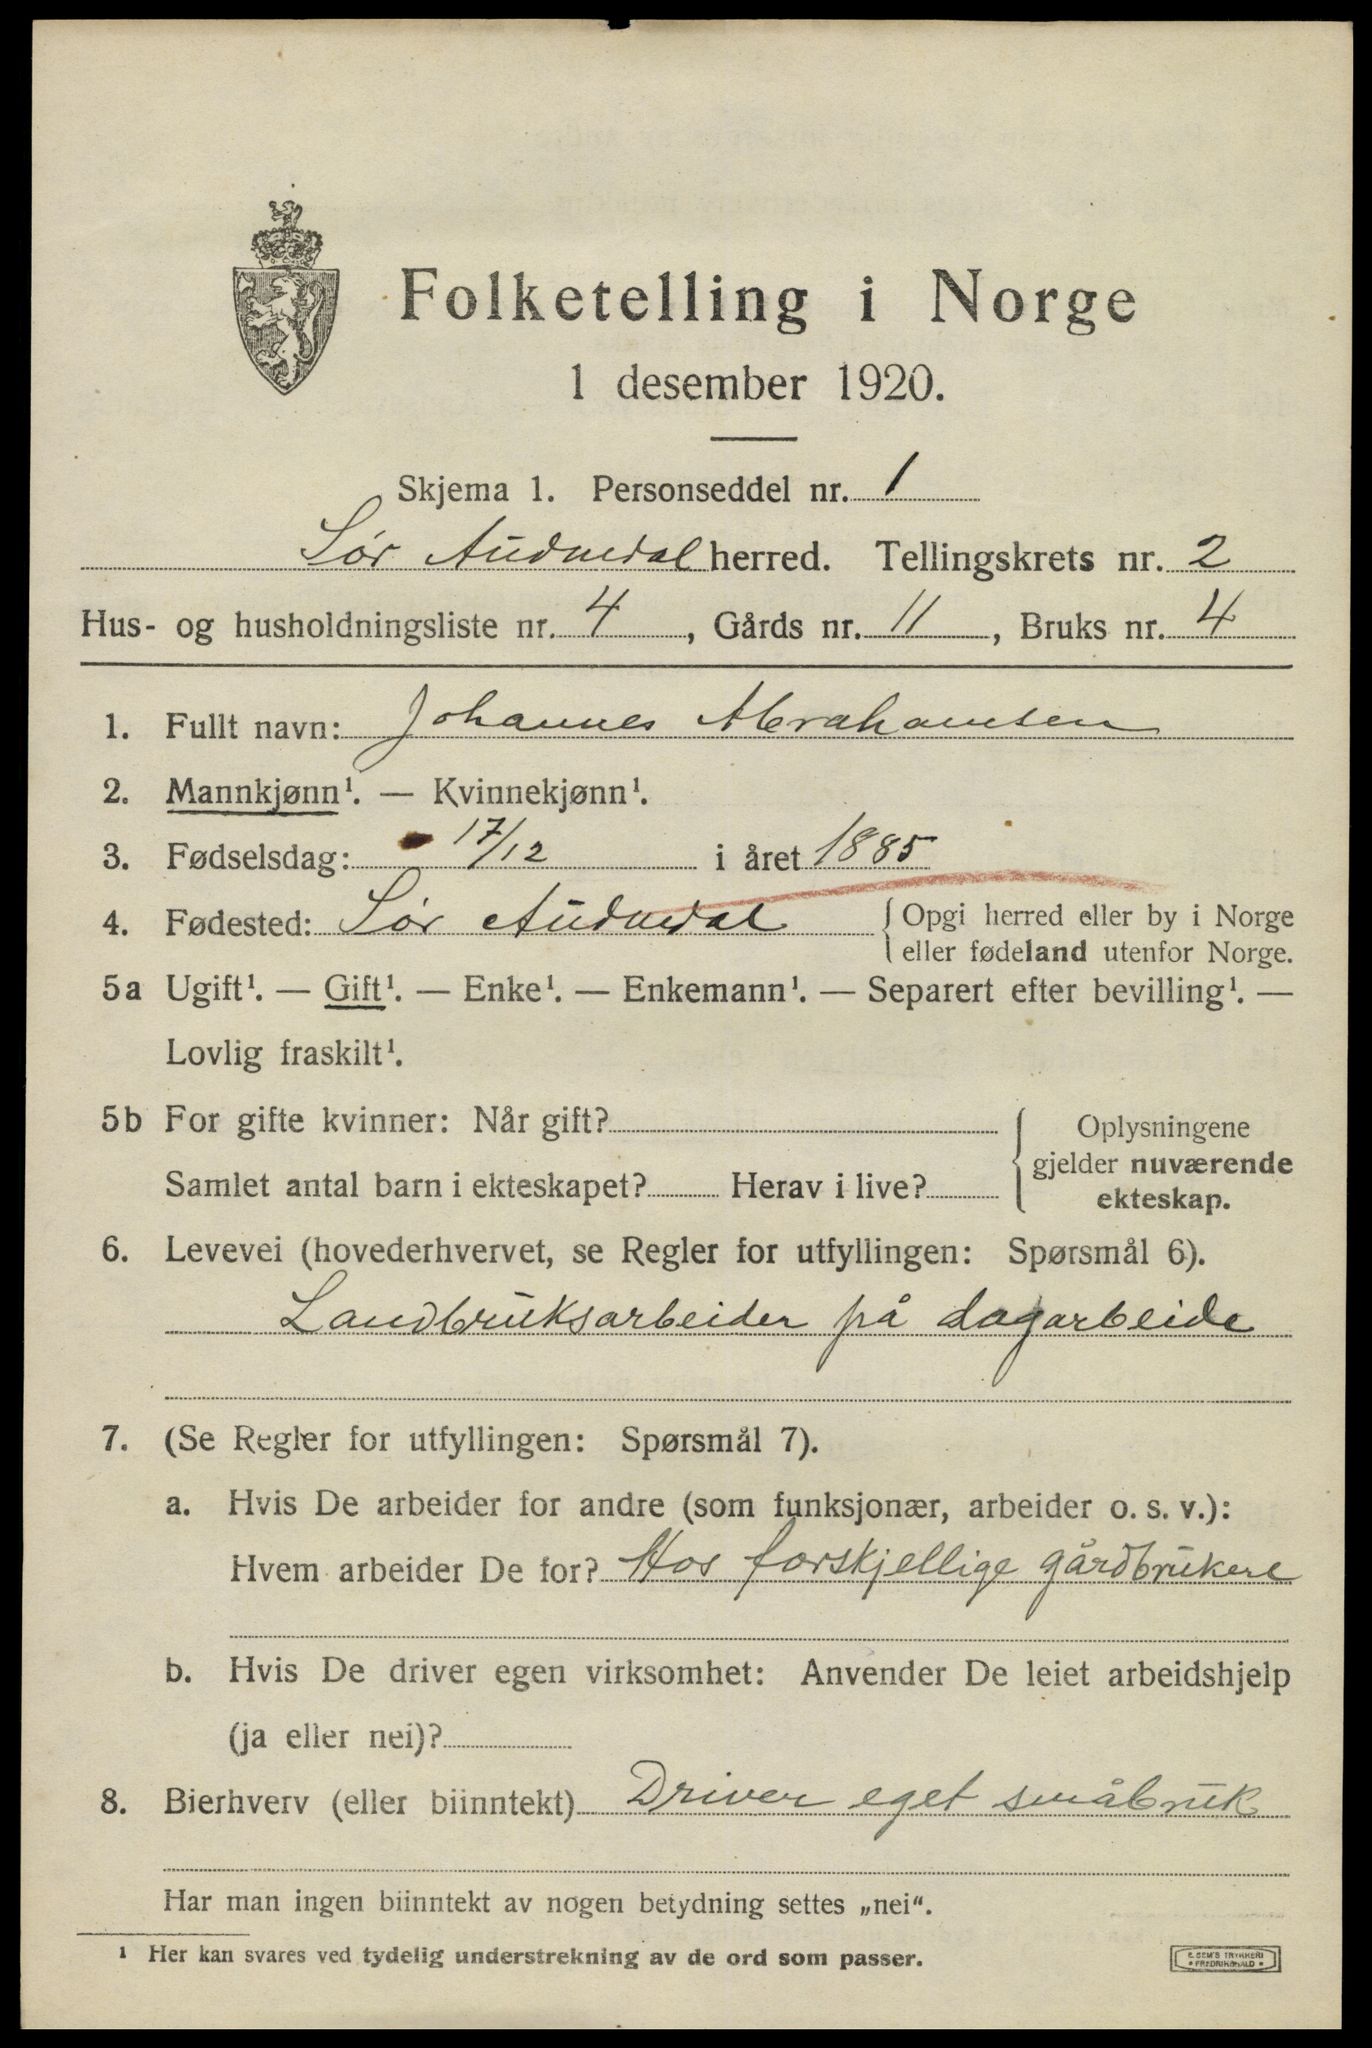 Folketelling i Norge
1 desember 1920.
Skjema 1. Personseddel nr. 1
Sør Audnedal herred. Tellingskrets nr. 2
Hus- og husholdningsliste nr. 4, Gårds nr. 11, Bruks nr. 4
1. Fullt navn: Johannes Abrahamsen
2. Mannkjønn¹. — Kvinnekjønn¹.
3. Fødselsdag: 17/12 i året 1885
4. Fødested: Sør Audnedal { Opgi herred eller by i Norge
eller fødeland utenfor Norge.
5a Ugift¹. — Gift¹. — Enke¹. — Enkemann¹. — Separert efter bevilling¹. —
Lovlig fraskilt¹.
5b For gifte kvinner: Når gift?
Samlet antal barn i ekteskapet? Herav i live?
{ Oplysningene
gjelder nuværende
ekteskap.
6. Levevei (hovederhvervet, se Regler for utfyllingen: Spørsmål 6).
Landbruksarbeider på dagarbeide
7. (Se Regler for utfyllingen: Spørsmål 7).
a. Hvis De arbeider for andre (som funksjonær, arbeider o. s. v.):
Hvem arbeider De for? Hos forskjellige gårdbrukere
b. Hvis De driver egen virksomhet: Anvender De leiet arbeidshjelp
(ja eller nei)?
8. Bierhverv (eller biinntekt) Driver eget småbruk
Har man ingen biinntekt av nogen betydning settes „nei“.
¹ Her kan svares ved tydelig understrekning av de ord som passer.
E. SEM'S TRYKKERI
• FREDRIKSHALD •